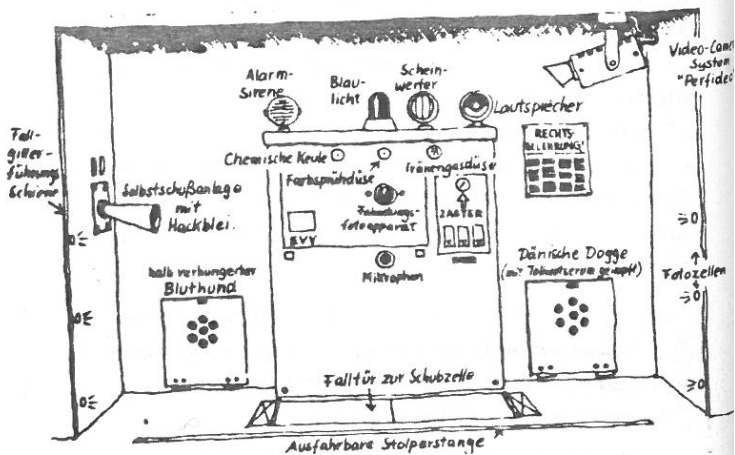 Alarm-
Sirene
Blau-
licht
Schein-
werfer
Lautsprecher
Video-Cam
System
"Perfideo"
Fall-
gitter-
führungs
Schiene
Selbstschußanlage
mit
Hackblei.
Chemische Keule
Farbsprühdüse
Tränengasdüse
RECHTS-
BELEHRUNG!
Fahndungs-
fotoapparat
ZASTER
Mikrophon
halb verhungerter
Bluthund
Dänische Dogge
(mit Tobwutserum geimpft)
Fotozellen
Falltür zur Schubzelle
Ausfahrbare Stolperstange